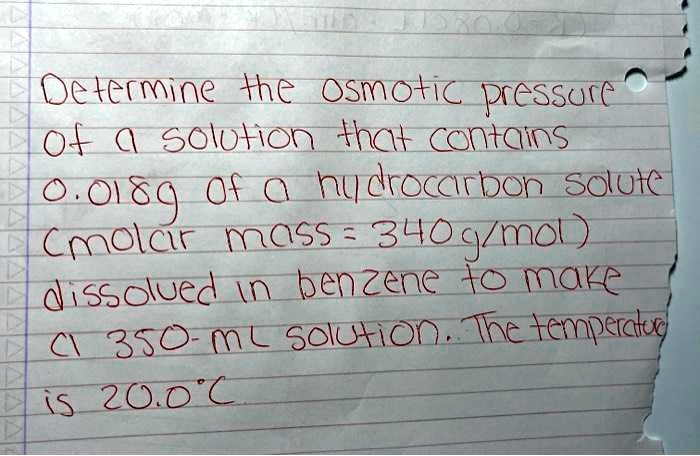 Determine the osmotic pressure
of a solution that contains
0.018g of a hydrocarbon solute
(molar mass = 340g/mol)
dissolved in benzene to make
a 350-mL solution. The temperature
is 20.0°C